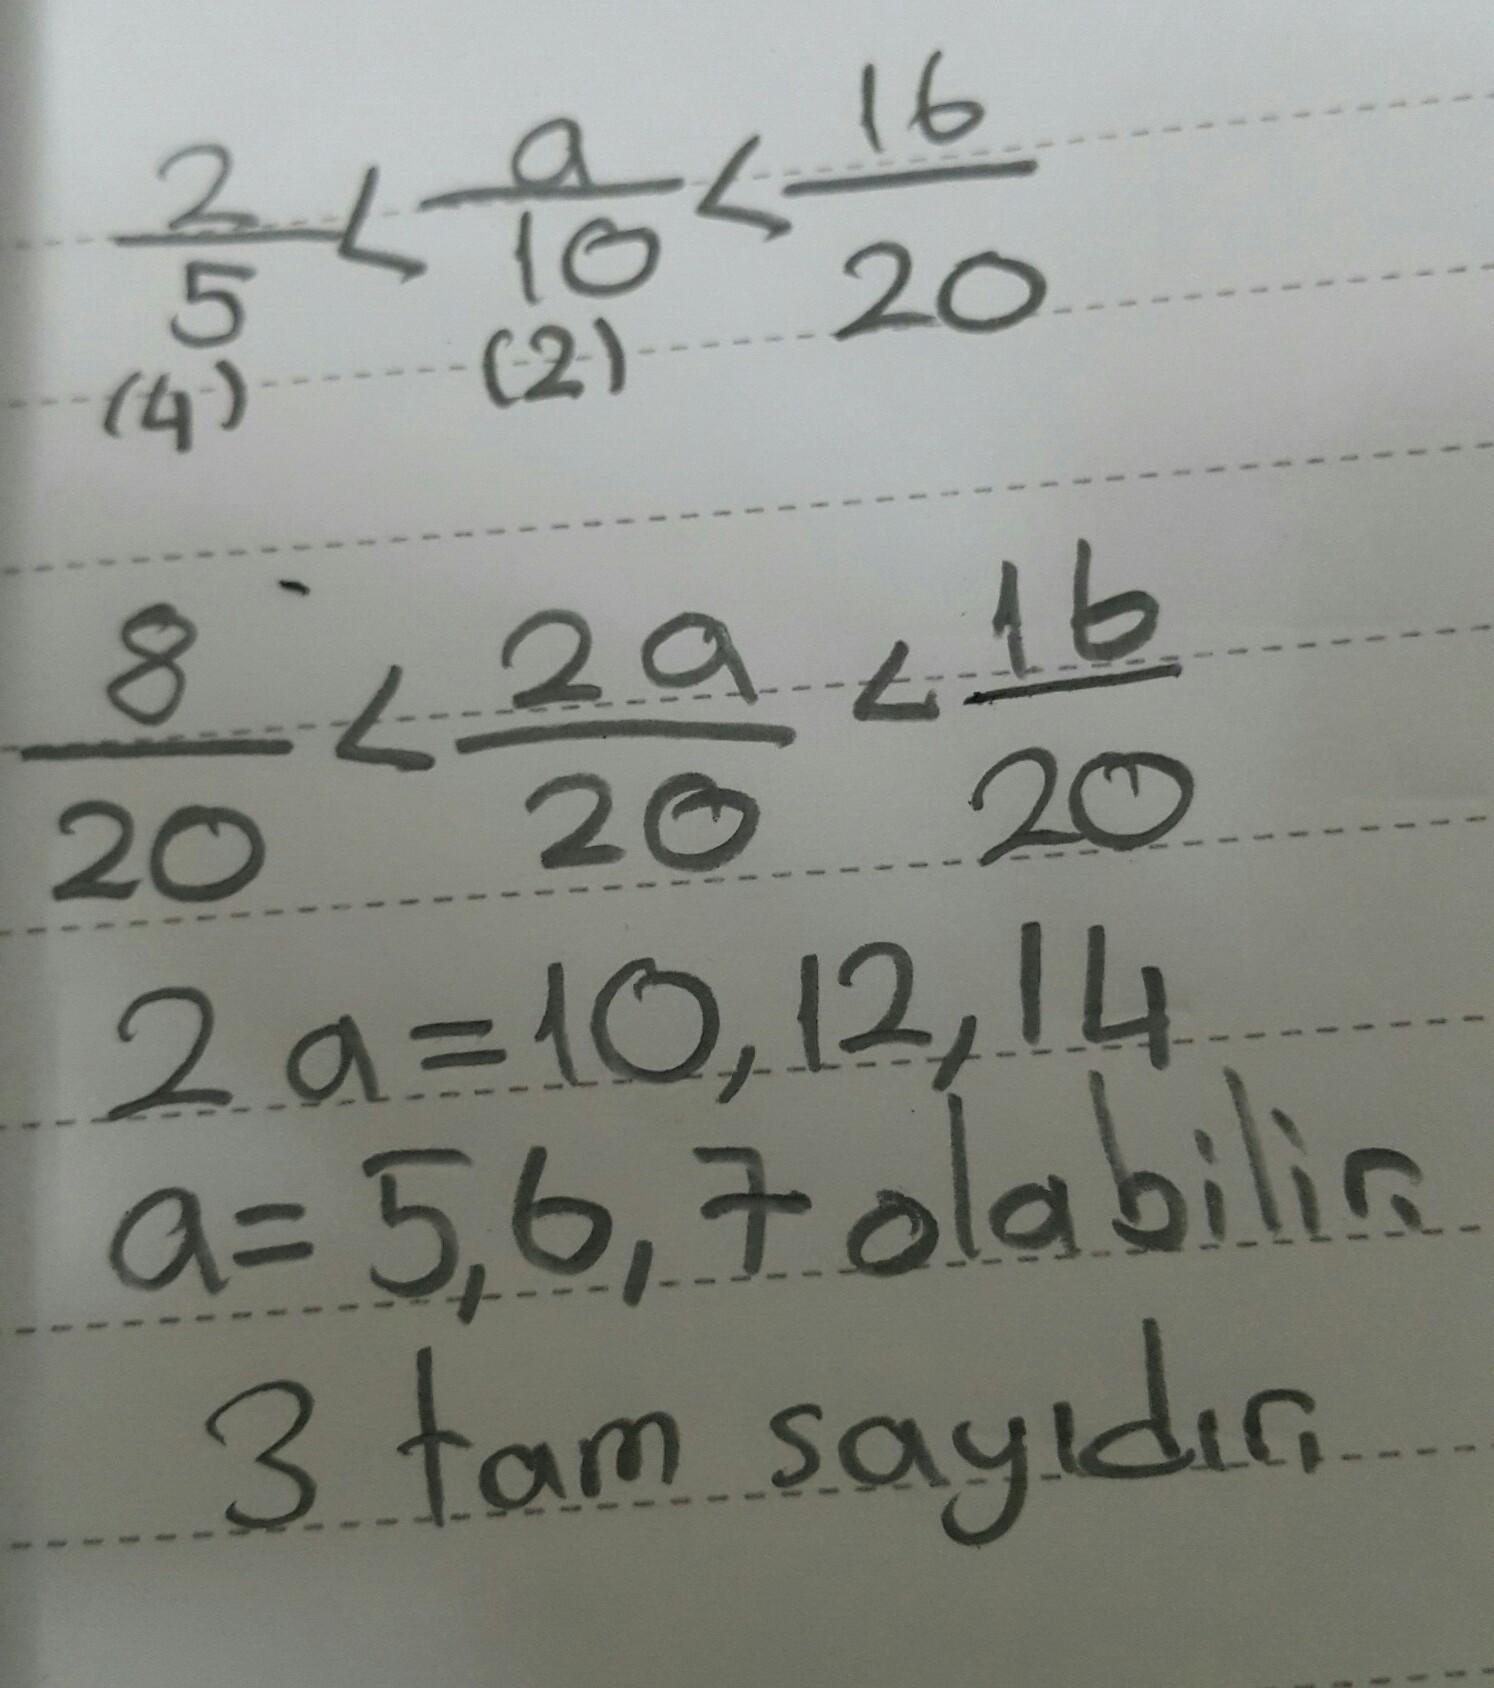 2/5 < a/10 < 16/20
(4) (2)
8/20 < 2a/20 < 16/20
2a=10,12,14
a=5,6,7 olabilir.
3 tam sayıdır.